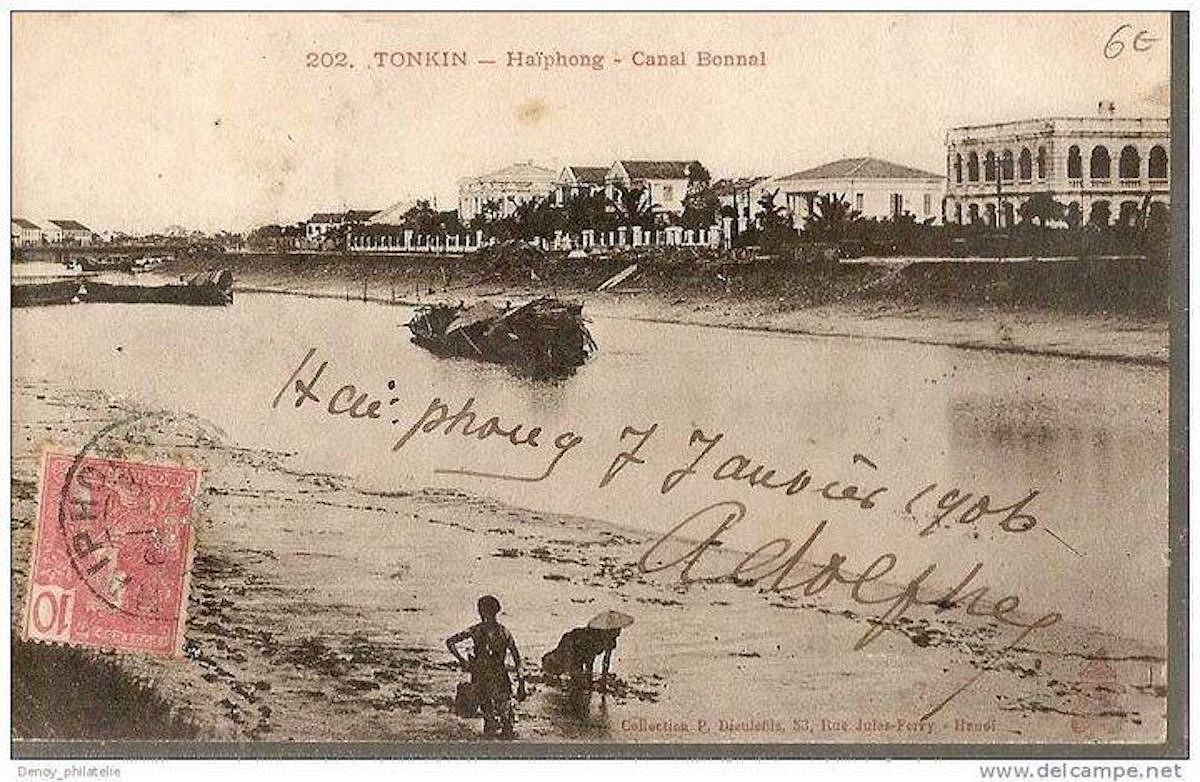 202. TONKIN — Haïphong - Canal Bonnal
6€
Haï-phong 7 Janvier 1906
Adolphe
IPHO
10
Collection P. Dieulefils, 53, Rue Jules-Ferry - Hanoi
Denoy_philatelie
www.delcampe.net